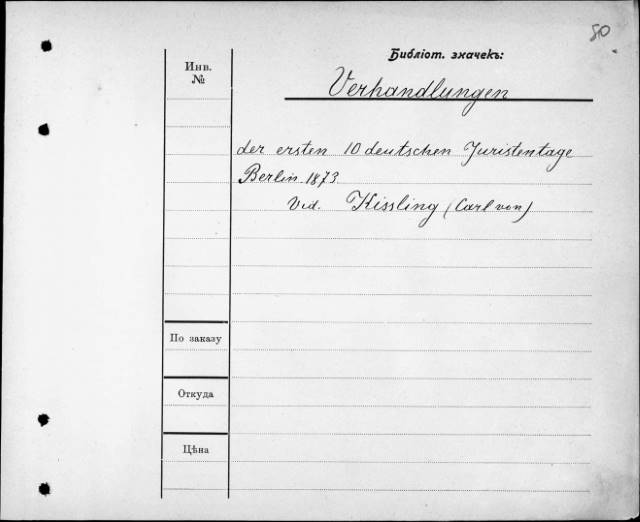 80
Библіот. значекъ:
Инв.
№
Verhandlungen
der ersten 10 deutschen Juristentage
Berlin 1873
Vid. Kissling (Carl von)
По заказу
Откуда
Цѣна